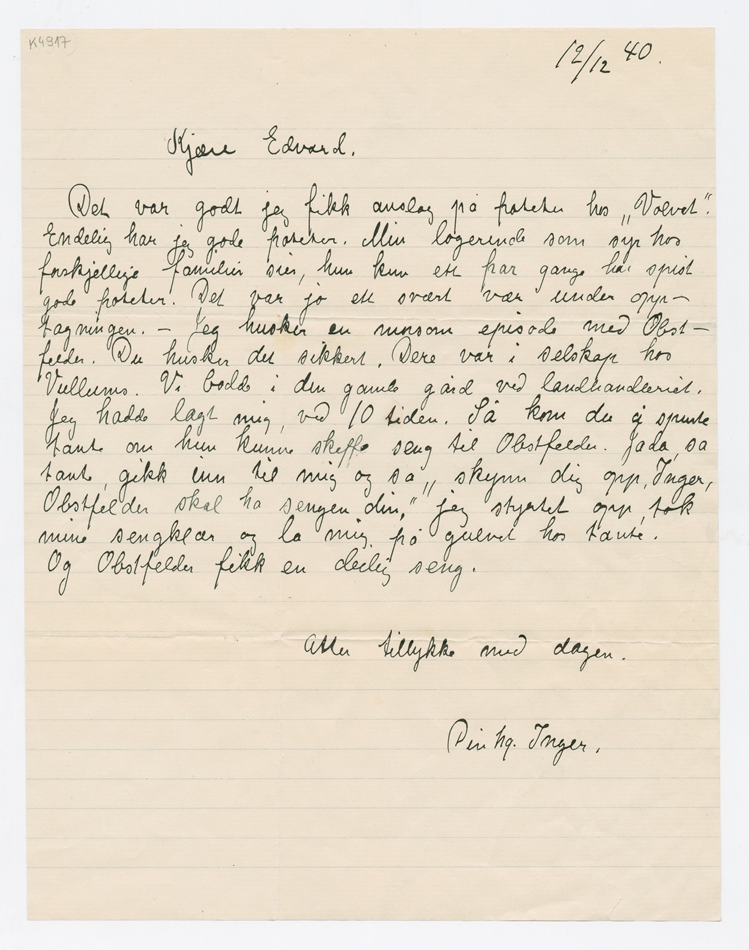 K4917
12/12 40.
Kjære Edvard.
Det var godt jeg fikk anslag på poteter hos „Volvet".
Endelig har jeg gode poteter. Min logerende som syr hos
forskjellige familier sier, hun kun ett par gange har spist
gode poteter. Det var jo ett svært vær under opp-
tagningen. – Jeg husker en morsom episode med Obst-
felder. Du husker det sikkert. Dere var i selskap hos
Vullums. Vi bodde i den gamle gård ved landhandleriet.
Jeg hadde lagt mig, ved 10 tiden. Så kom du og spurte
tante om hun kunne skaffe seng til Obstfelder. Jada, sa
tante, gikk inn til mig og sa „skynn dig opp, Inger,
Obstfelder skal ha sengen din," jeg styrtet opp, tok
mine sengklær og la mig på gulvet hos tante.
Og Obstfelder fikk en deilig seng.
Atter tillykke med dagen.
Din hg. Inger.